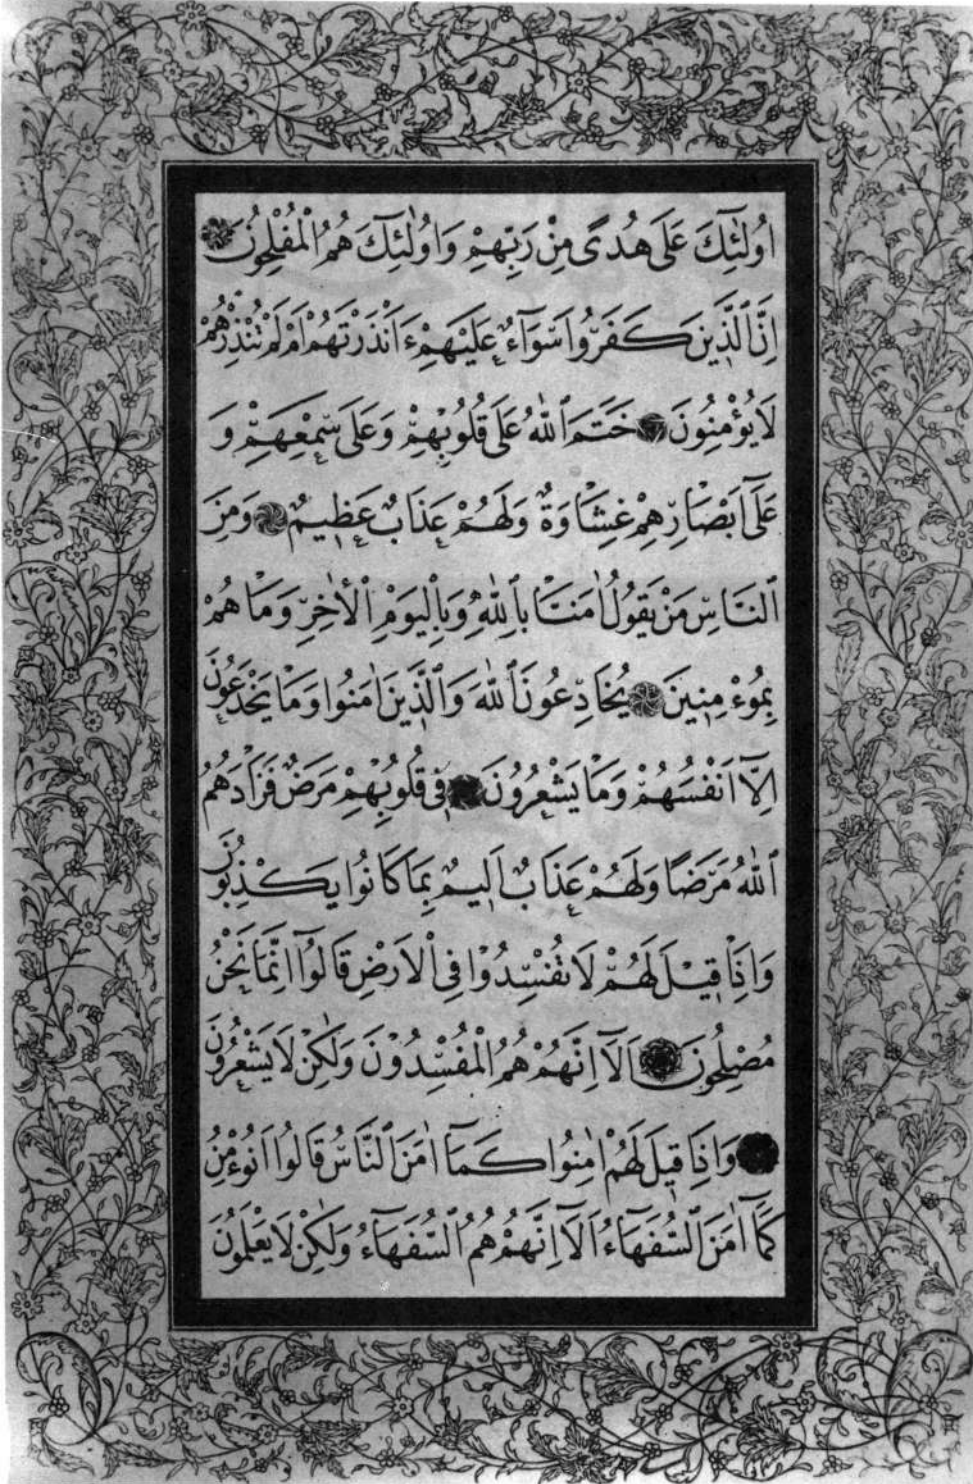 اُولٰٓئِكَ عَلٰى هُدًى مِنْ رَبِّهِمْ وَاُولٰٓئِكَ هُمُ الْمُفْلِحُونَ
اِنَّ الَّذ۪ينَ كَفَرُوا سَوَٓاءٌ عَلَيْهِمْ ءَاَنْذَرْتَهُمْ اَمْ لَمْ تُنْذِرْهُمْ
لَا يُؤْمِنُونَ خَتَمَ اللّٰهُ عَلٰى قُلُوبِهِمْ وَعَلٰى سَمْعِهِمْ وَ
عَلٰٓى اَبْصَارِهِمْ غِشَاوَةٌ وَلَهُمْ عَذَابٌ عَظ۪يمٌ وَمِنَ
النَّاسِ مَنْ يَقُولُ اٰمَنَّا بِاللّٰهِ وَبِالْيَوْمِ الْاٰخِرِ وَمَا هُمْ
بِمُوءْمِن۪ينَ يُخَادِعُونَ اللّٰهَ وَالَّذ۪ينَ اٰمَنُوا وَمَا يَخْدَعُونَ
اِلَّٓا اَنْفُسَهُمْ وَمَا يَشْعُرُونَ ف۪ي قُلُوبِهِمْ مَرَضٌ فَزَادَهُمُ
اللّٰهُ مَرَضًا وَلَهُمْ عَذَابٌ اَل۪يمٌ بِمَا كَانُوا يَكْذِبُونَ
وَاِذَا ق۪يلَ لَهُمْ لَا تُفْسِدُوا فِي الْاَرْضِ قَالُٓوا اِنَّمَا نَحْنُ
مُصْلِحُونَ اَلَٓا اِنَّهُمْ هُمُ الْمُفْسِدُونَ وَلٰكِنْ لَا يَشْعُرُونَ
وَاِذَا ق۪يلَ لَهُمْ اٰمِنُوا كَمَٓا اٰمَنَ النَّاسُ قَالُٓوا اَنُوءْمِنُ
كَمَٓا اٰمَنَ السُّفَهَٓاءُ اَلَٓا اِنَّهُمْ هُمُ السُّفَهَٓاءُ وَلٰكِنْ لَا يَعْلَمُونَ